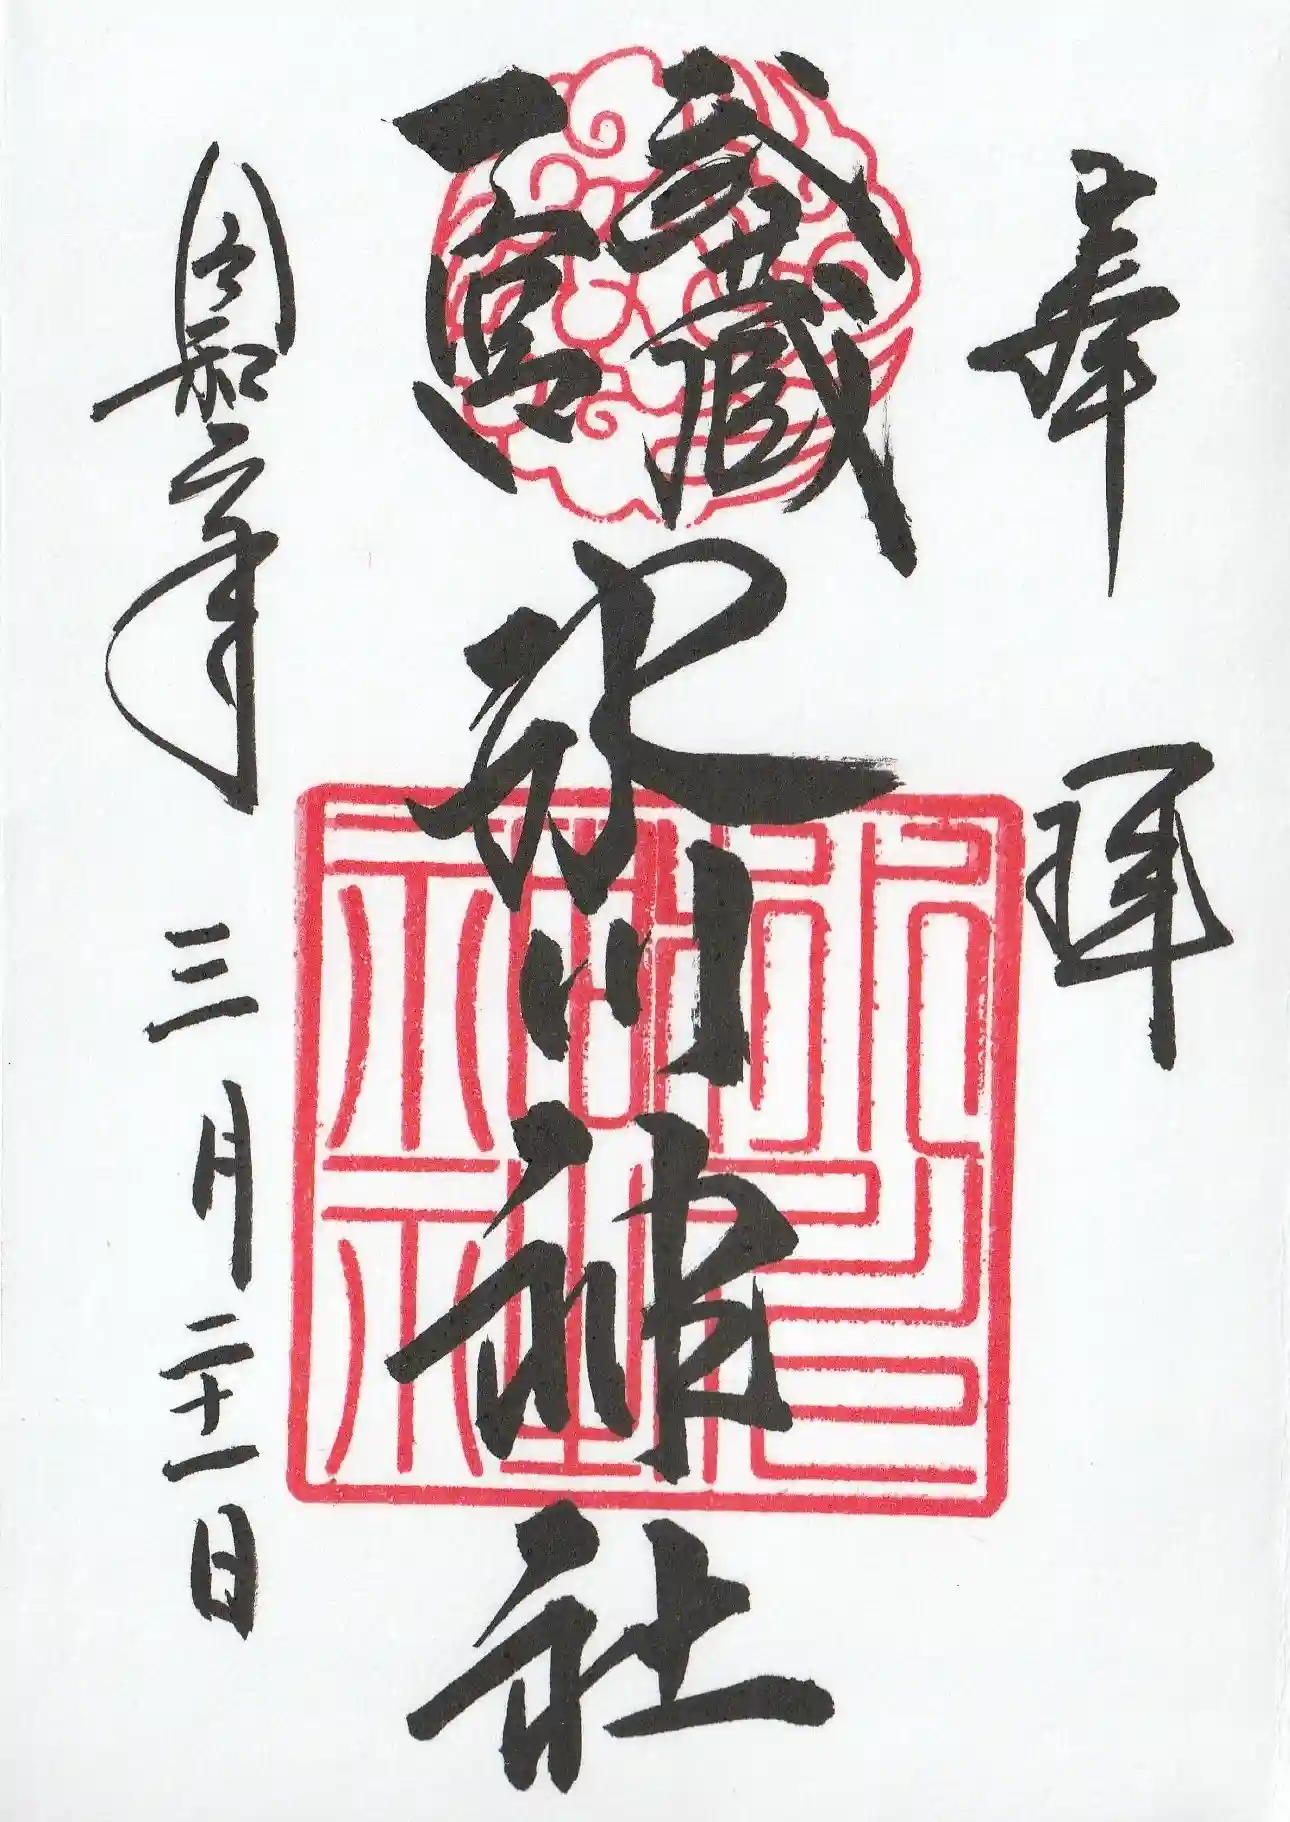 奉拝
武蔵
一宮
氷川神社
令和二年三月二十一日